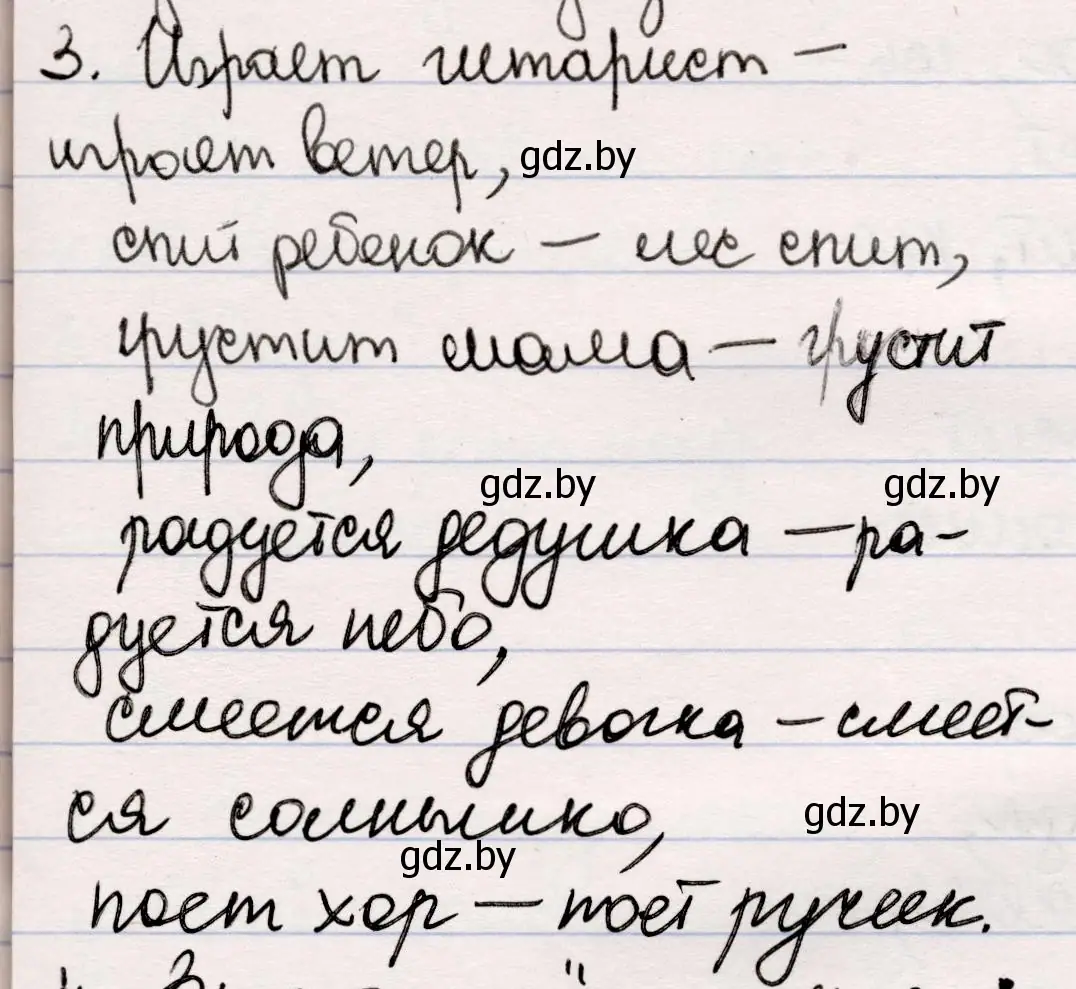 3. Играет гитарист –
играет ветер, gdz.by
спит ребенок – лес спит,
грустит мама – грустит
природа,
gdz.by gdz.by
радуется дедушка – ра-
дуется небо,
смеется девочка – смеет-
ся солнышко, gdz.by
gdz.by
поет хор – поет ручеек.